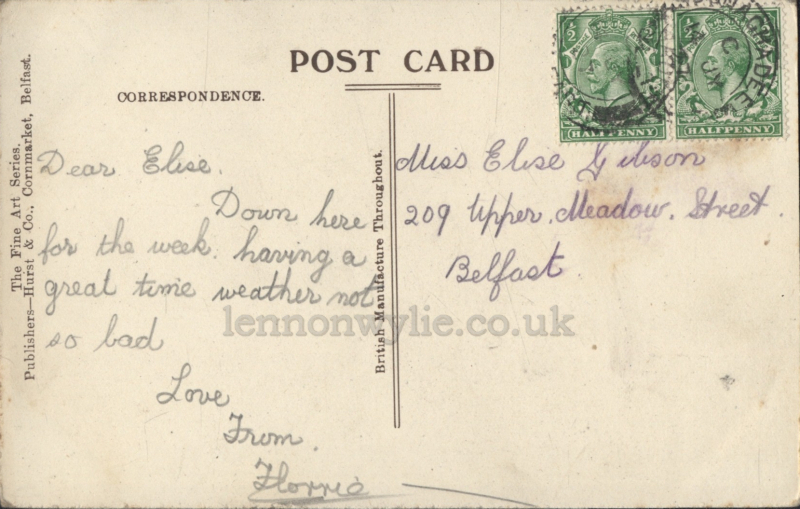 POST CARD
CORRESPONDENCE.
The Fine Art Series.
Publishers—Hurst & Co., Cornmarket, Belfast.
British Manufacture Throughout.
Dear Elise.
Down here
for the week. having a
great time weather not
so bad
Love
From.
Florrie
Miss Elise Gibson
209 Upper. Meadow. Street.
Belfast
½ ½
HALFPENNY
½ ½
HALFPENNY
lennonwylie.co.uk